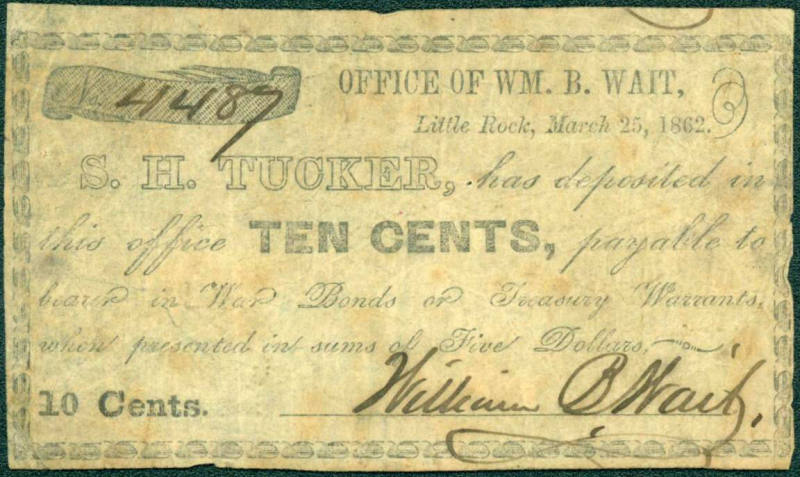 No. 4487
OFFICE OF WM. B. WAIT,
Little Rock, March 25, 1862.
S. H. TUCKER, has deposited in
this office TEN CENTS, payable to
bearer in War Bonds or Treasury Warrants,
when presented in sums of Five Dollars,
10 Cents. William B Wait.